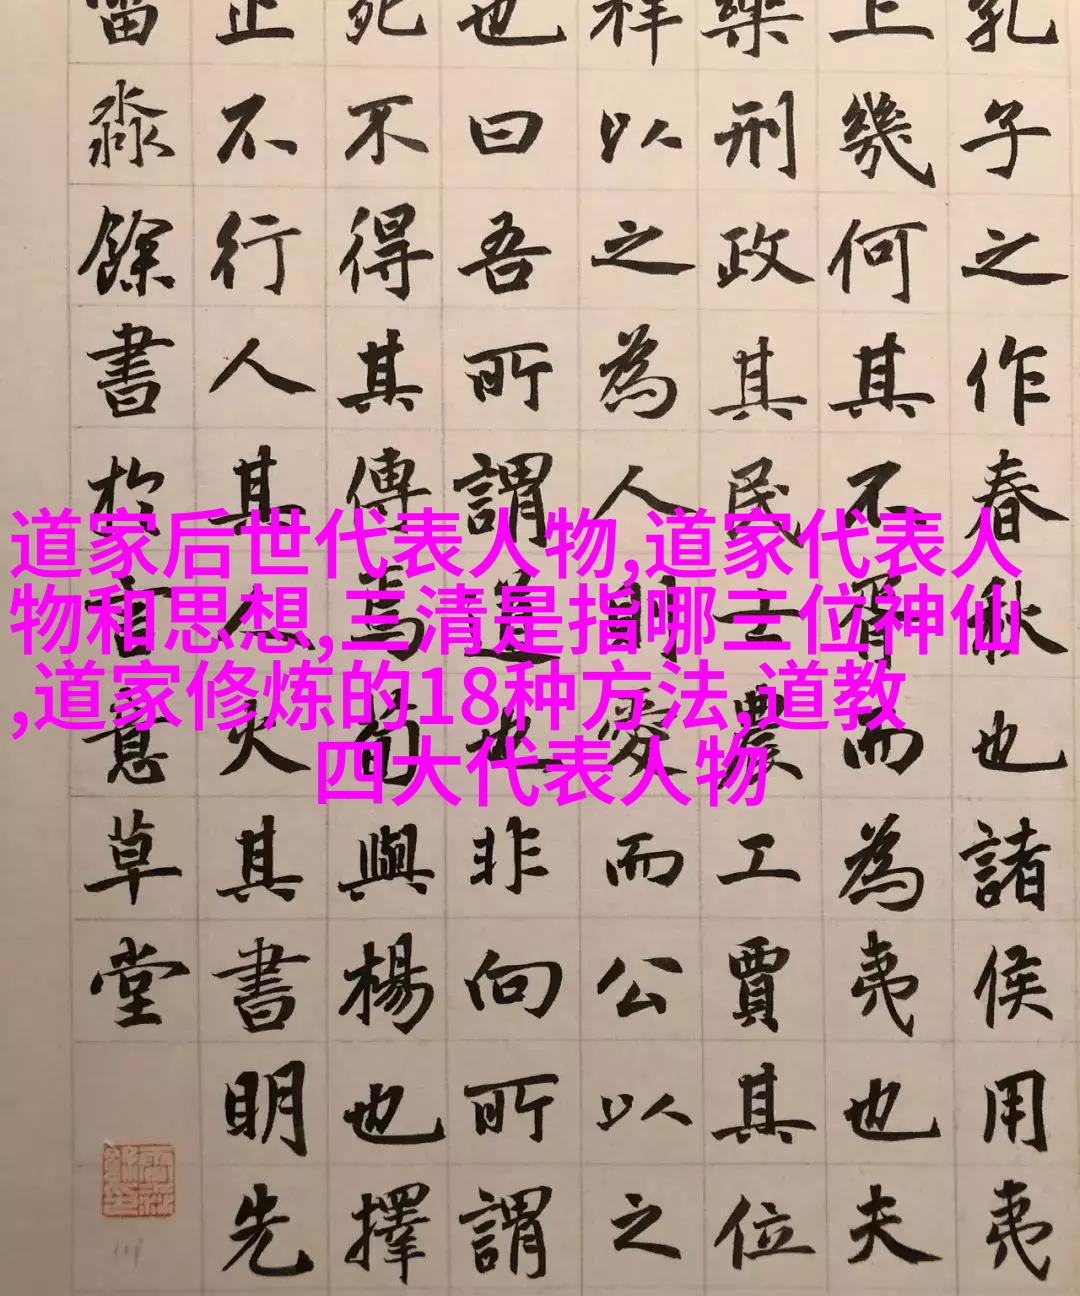 孔子之作春秋也諸侯用夷
上幾何其不胥而為夷也夫
樂刑政其民士農工賈其位
祥以之為人則愛而公以之
也曰吾所謂道也非向所謂
死不得其傳焉荀與楊也擇
止不行人其人火其書明先
淼餘書於意草堂
道家后世代表人物,道家代表人
物和思想,三清是指哪三位神仙
,道家修炼的18种方法,道教
四大代表人物